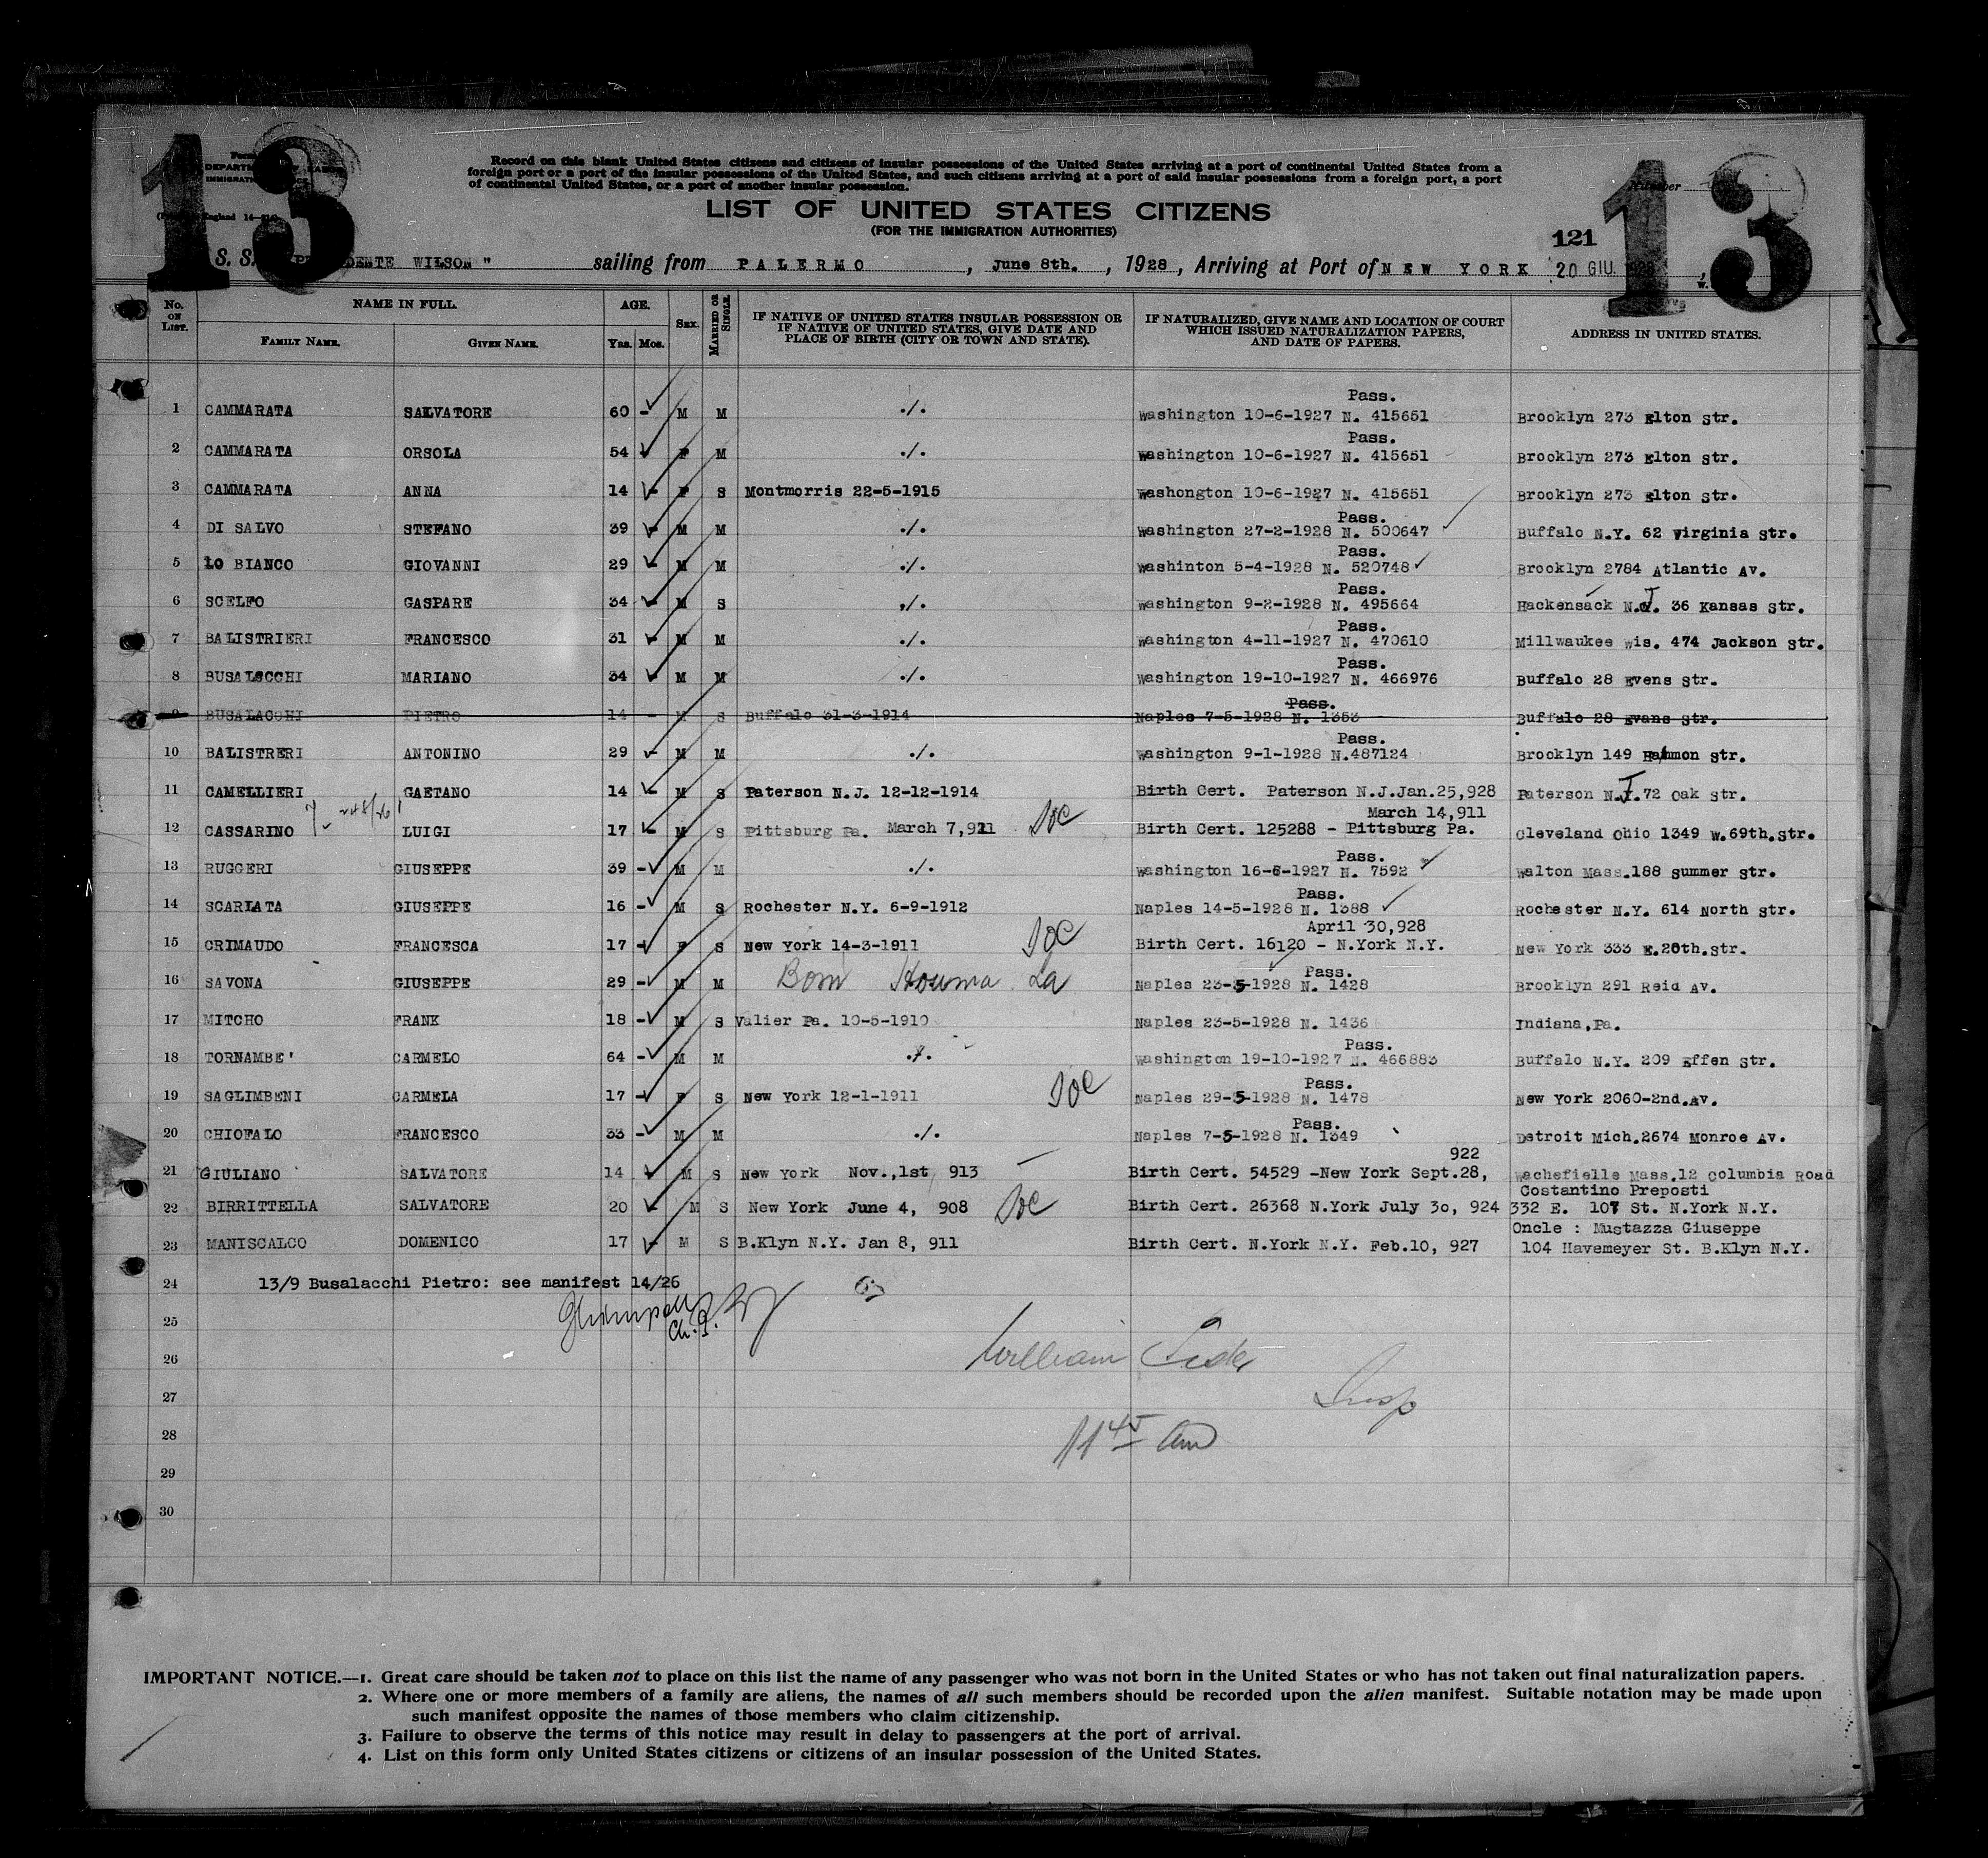 13
13
Form
DEPARTMENT OF LABOR
IMMIGRATION
England 14
Number
Record on this blank United States citizens and citizens of insular possessions of the United States arriving at a port of continental United States from a
foreign port or a port of the insular possessions of the United States, and such citizens arriving at a port of said insular possessions from a foreign port, a port
of continental United States, or a port of another insular possession.
LIST OF UNITED STATES CITIZENS
(FOR THE IMMIGRATION AUTHORITIES)
121
S. S. DENTE WILSON " sailing from PALERMO , June 8th. , 1928 , Arriving at Port of NEW YORK 20 GIU. 1928 ,
No. ON LIST. NAME IN FULL. AGE. SEX. MARRIED OR SINGLE. IF NATIVE OF UNITED STATES INSULAR POSSESSION OR IF NATIVE OF UNITED STATES, GIVE DATE AND PLACE OF BIRTH (CITY OR TOWN AND STATE). IF NATURALIZED, GIVE NAME AND LOCATION OF COURT WHICH ISSUED NATURALIZATION PAPERS, AND DATE OF PAPERS. ADDRESS IN UNITED STATES.
FAMILY NAME. GIVEN NAME. Yrs. Mos.
Pass.
1 CAMMARATA SALVATORE 60 - M M ./. Washington 10-6-1927 N. 415651 Brooklyn 273 Elton Str.
Pass.
2 CAMMARATA ORSOLA 54 F M ./. Washington 10-6-1927 N. 415651 Brooklyn 273 Elton Str.
3 CAMMARATA ANNA 14 - F S Montmorris 22-5-1915 Washongton 10-6-1927 N. 415651 Brooklyn 273 Elton Str.
Pass.
4 DI SALVO STEFANO 39 - M M ./. Washington 27-2-1928 N. 500647 Buffalo N.Y. 62 Virginia Str.
Pass.
5 lo BIANCO GIOVANNI 29 - M M ./. Washinton 5-4-1928 N. 520748 Brooklyn 2784 Atlantic Av.
Pass.
6 SCELFO GASPARE 34 - M S ./. Washington 9-2-1928 N. 495664 Hackensack N.J. 36 Kansas Str.
Pass.
7 BALISTRIERI FRANCESCO 31 - M M ./. Washington 4-11-1927 N. 470610 Millwaukee Wis. 474 Jackson Str.
Pass.
8 BUSALACCHI MARIANO 34 - M M ./. Washington 19-10-1927 N. 466976 Buffalo 28 Evens Str.
Pass.
9 BUSALACCHI PIETRO 14 - M S Buffalo 31-3-1914 Naples 7-5-1928 N. 1353 Buffalo 28 Evans Str.
Pass.
10 BALISTRERI ANTONINO 29 - M M ./. Washington 9-1-1928 N.487124 Brooklyn 149 Hammon Str.
11 CAMELLIERI GAETANO 14 - M S Paterson N.J. 12-12-1914 Birth Cert. Paterson N.J.Jan.25,928 Paterson N.J. 72 Oak Str.
March 14,911
12 CASSARINO LUIGI 17 - M S Pittsburg Pa. March 7,911 Birth Cert. 125288 - Pittsburg Pa. Cleveland Ohio 1349 W.69th.Str.
Pass.
13 RUGGERI GIUSEPPE 39 - M M ./. Washington 16-6-1927 N. 7592 Walton Mass.188 Summer Str.
Pass.
14 SCARLATA GIUSEPPE 16 - M S Rochester N.Y. 6-9-1912 Naples 14-5-1928 N. 1388 Rochester N.Y. 614 North Str.
April 30,928
15 CRIMAUDO FRANCESCA 17 - F S New York 14-3-1911 Birth Cert. 16120 - N.York N.Y. New York 333 E.28th.Str.
Pass.
16 SAVONA GIUSEPPE 29 - M M Born Houma La Naples 23-5-1928 N. 1428 Brooklyn 291 Reid Av.
17 MITCHO FRANK 18 - M S Valier Pa. 10-5-1910 Naples 23-5-1928 N. 1436 Indiana,Pa.
Pass.
18 TORNAMBE' CARMELO 64 - M M ./. Washington 19-10-1927 N. 466883 Buffalo N.Y. 209 Effen Str.
Pass.
19 SAGLIMBENI CARMELA 17 - F S New York 12-1-1911 Naples 29-5-1928 N. 1478 New York 2060-2nd.Av.
Pass.
20 CHIOFALO FRANCESCO 33 - M M ./. Naples 7-5-1928 N. 1349 Detroit Mich.2674 Monroe Av.
922
21 GIULIANO SALVATORE 14 - M S New York Nov.,1st 913 Birth Cert. 54529 -New York Sept.28, Wachefielle Mass.12 Columbia Road
Costantino Preposti
22 BIRRITTELLA SALVATORE 20 M S New York June 4, 908 Birth Cert. 26368 N.York July 30, 924 332 E. 107 St. N.York N.Y.
Oncle : Mustazza Giuseppe
23 MANISCALCO DOMENICO 17 - M S B.Klyn N.Y. Jan 8, 911 Birth Cert. N.York N.Y. Feb.10, 927 104 Havemeyer St. B.Klyn N.Y.
24 13/9 Busalacchi Pietro: see manifest 14/26
25
26 William
27 Insp
28 11 45 am
29
30
IMPORTANT NOTICE.—1. Great care should be taken not to place on this list the name of any passenger who was not born in the United States or who has not taken out final naturalization papers.
2. Where one or more members of a family are aliens, the names of all such members should be recorded upon the alien manifest. Suitable notation may be made upon
such manifest opposite the names of those members who claim citizenship.
3. Failure to observe the terms of this notice may result in delay to passengers at the port of arrival.
4. List on this form only United States citizens or citizens of an insular possession of the United States.